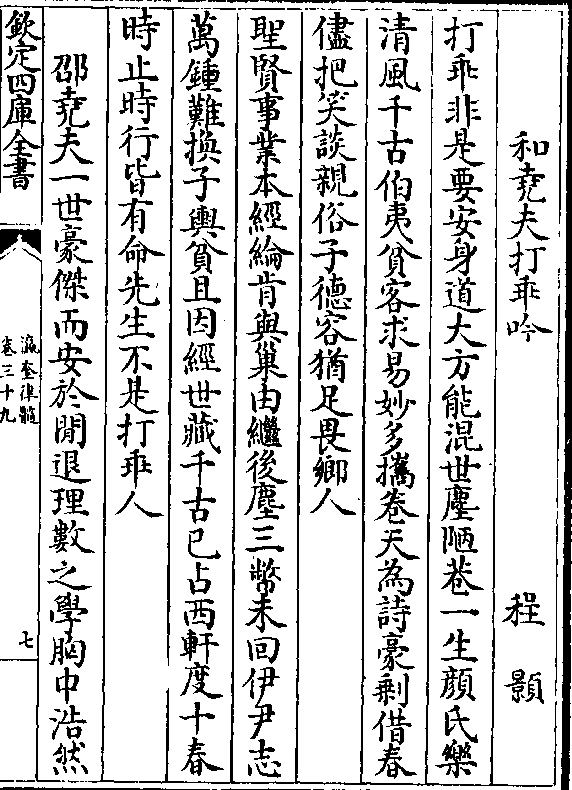 和堯夫打乖吟　程顥
打乖非是要安身道大方能混世塵陋巷一生顔氏樂
清風千古伯夷貧客求易妙多攜卷天為詩豪剰借春
儘把笑談親俗子德容猶足畏鄉人
聖賢事業本經綸肯與巢由繼後塵三幣未回伊尹志
萬鍾難換子輿貧且因經世藏千古已占西軒度十春
時止時行皆有命先生不是打乖人
邵堯夫一世豪傑而安於閒退理數之學胸中浩然
欽定四庫全書
瀛奎律髓
卷三十九
七